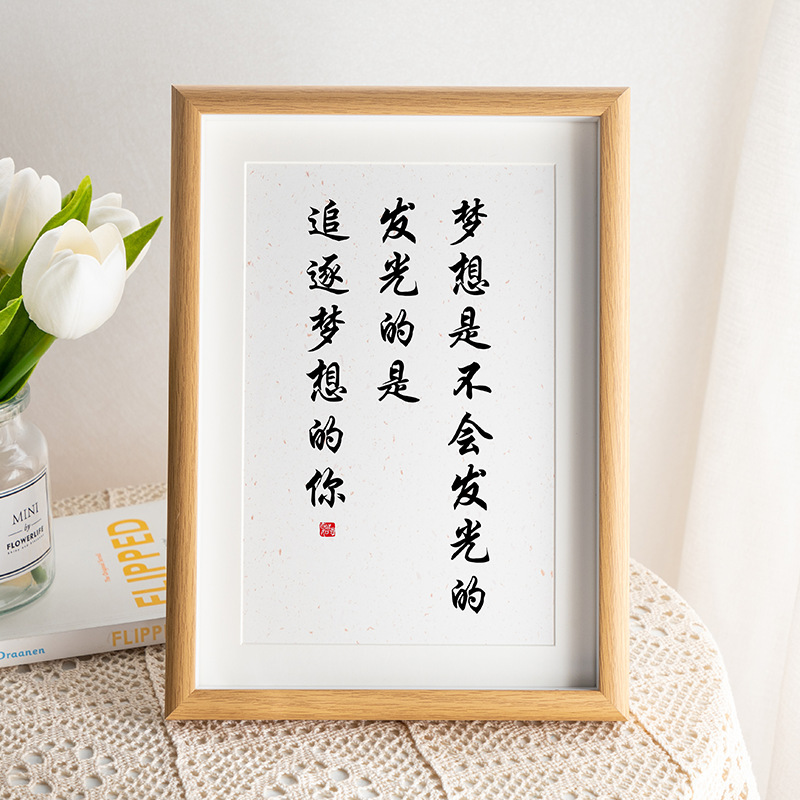 梦想是不会发光的
发光的是
追逐梦想的你
MINI
by
FLOWERLIFE
FLIPPED
FLIPP
Draanen